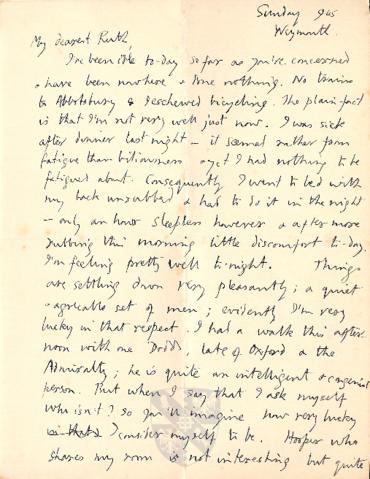 Sunday 9.45
Weymouth.
My dearest Ruth,
I've been idle to-day so far as you're concerned
& have been nowhere & done nothing. No trains
to Abbotsbury & I eschewed bicycling. The plain fact
is that I'm not very well just now. I was sick
after dinner last night – it seemed rather from
fatigue than biliousness & yet I had nothing to be
fatigued about. Consequently I went to bed with
my back unrubbed & had to do it in the night
– only an hour sleepless however & after more
rubbing this morning little discomfort to-day.
I'm feeling pretty well to-night. Things
are settling down very pleasantly; a quiet
& agreeable set of men; evidently I'm very
lucky in that respect. I had a walk this after-
noon with one Dodd, late of Oxford & the
Admiralty; he is quite an intelligent & congenial
person. But when I say that I ask myself
who isn't? so you'll imagine how very lucky
in that I consider myself to be. Hooper who
shares my room is not interesting but quite